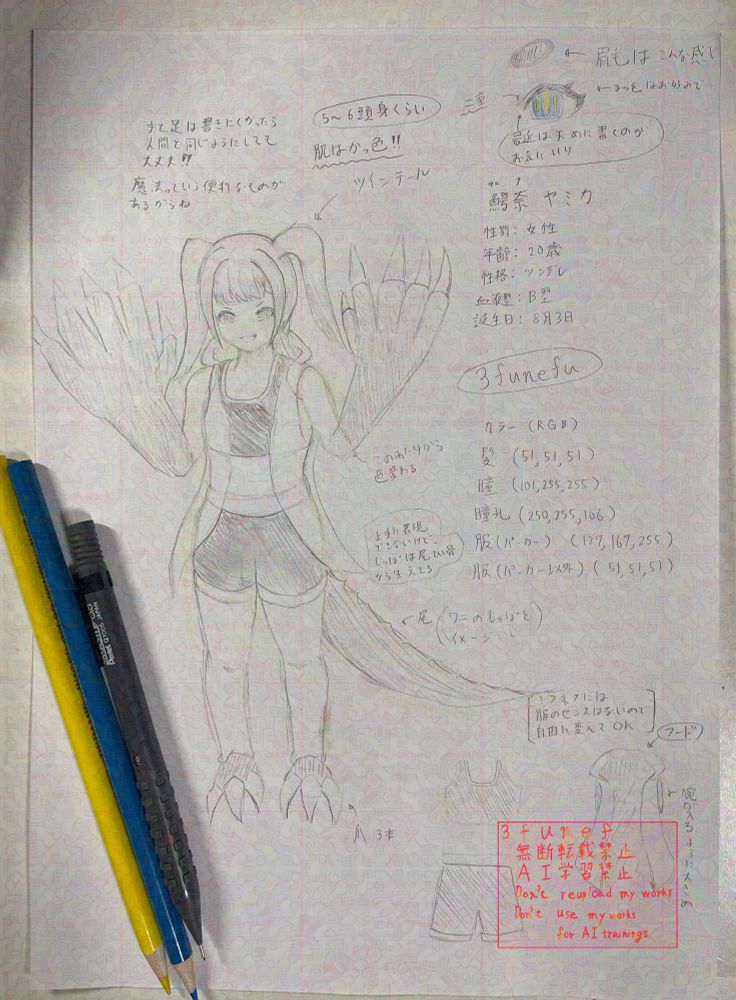 眉毛はこんな感じ
まつ毛はお好みで
二重
最近は太めに書くのが
お気にいり
手と足は書きにくかったら
人間と同じようにしても
大丈夫!!
魔法っていう便利なものが
あるからね
5~6頭身くらい
肌はかっ色!!
ツインテール
鰐奈 ヤミカ
性別: 女性
年齢: 20歳
性格: ツンデレ
血液型: B型
誕生日: 8月3日
3funefu
カラー (RGB)
髪 (51,51,51)
瞳 (101,255,255)
瞳孔 (250,255,106)
服(パーカー) (127,167,255)
服(パーカー以外) (51,51,51)
このあたりから
色変わる
上手に表現
できないけど、
しっぽは尾てい骨
から生えてる
尾 (ワニのしっぽを
イメージ
ミフネフには
服のセンスはないので
自由に変えてOK
フード
爪 3本
3funef
無断転載禁止
AI学習禁止
Don't reupload my works
Don't use my works
for AI trainings
Pentel